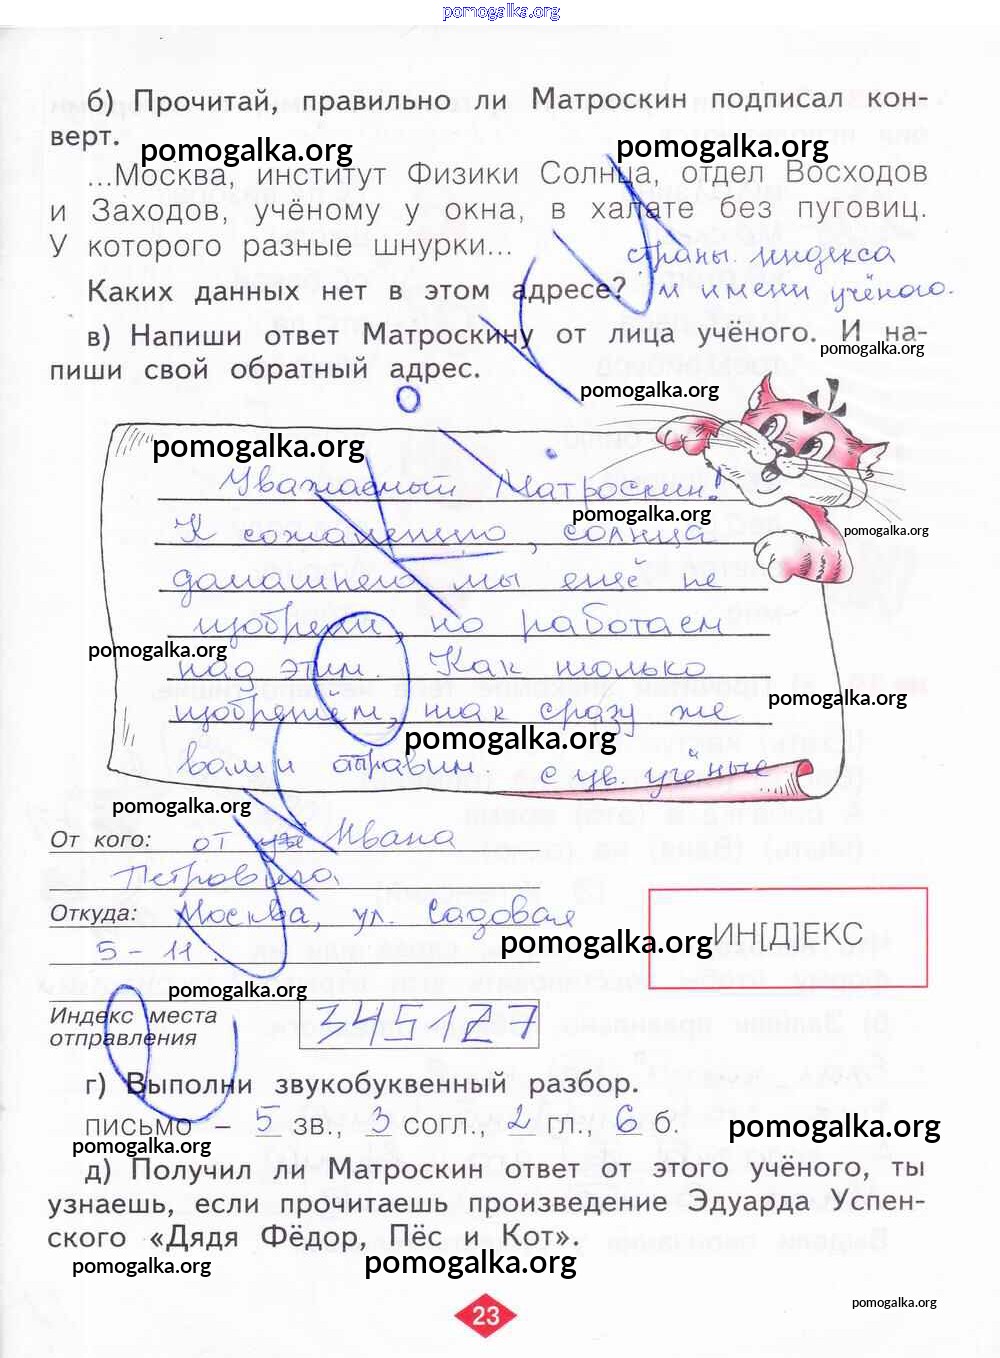 pomogalka.org
б) Прочитай, правильно ли Матроскин подписал кон-
верт.
pomogalka.org pomogalka.org
...Москва, институт Физики Солнца, отдел Восходов
и Заходов, учёному у окна, в халате без пуговиц.
У которого разные шнурки...
страны. индекса
Каких данных нет в этом адресе? и имени учёного.
в) Напиши ответ Матроскину от лица учёного. И на-
pomogalka.org
пиши свой обратный адрес.
pomogalka.org
pomogalka.org
Уважаемый Матроскин!
pomogalka.org
К сожалению, солнца
pomogalka.org
домашнего мы ещё не
изобрели, но работаем
pomogalka.org
над этим. Как только
pomogalka.org
изобретем, так сразу же
pomogalka.org
вам и отправим. с ув. учёные
pomogalka.org
От кого: от Ивана
Петровича
Откуда: Москва, ул. Садовая
ИН[Д]ЕКС
pomogalka.org
5 - 11.
pomogalka.org
Индекс места
отправления
345127
г) Выполни звукобуквенный разбор.
письмо – 5 зв., 3 согл., 2 гл., 6 б.
pomogalka.org
pomogalka.org
д) Получил ли Матроскин ответ от этого учёного, ты
узнаешь, если прочитаешь произведение Эдуарда Успен-
ского «Дядя Фёдор, Пёс и Кот».
pomogalka.org pomogalka.org
pomogalka.org
23